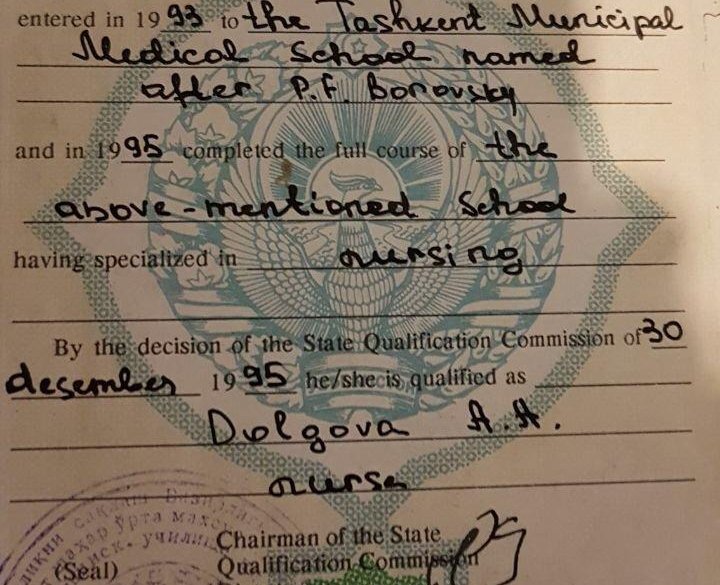 entered in 1993 to the Tashkent Municipal
Medical School named
after P.F. Borovsky
and in 1995 completed the full course of the
above-mentioned School
having specialized in nursing
By the decision of the State Qualification Commission of 30
desember 1995 he/she is qualified as
Dolgova A.A.
nurse
Chairman of the State
(Seal) Qualification Commission